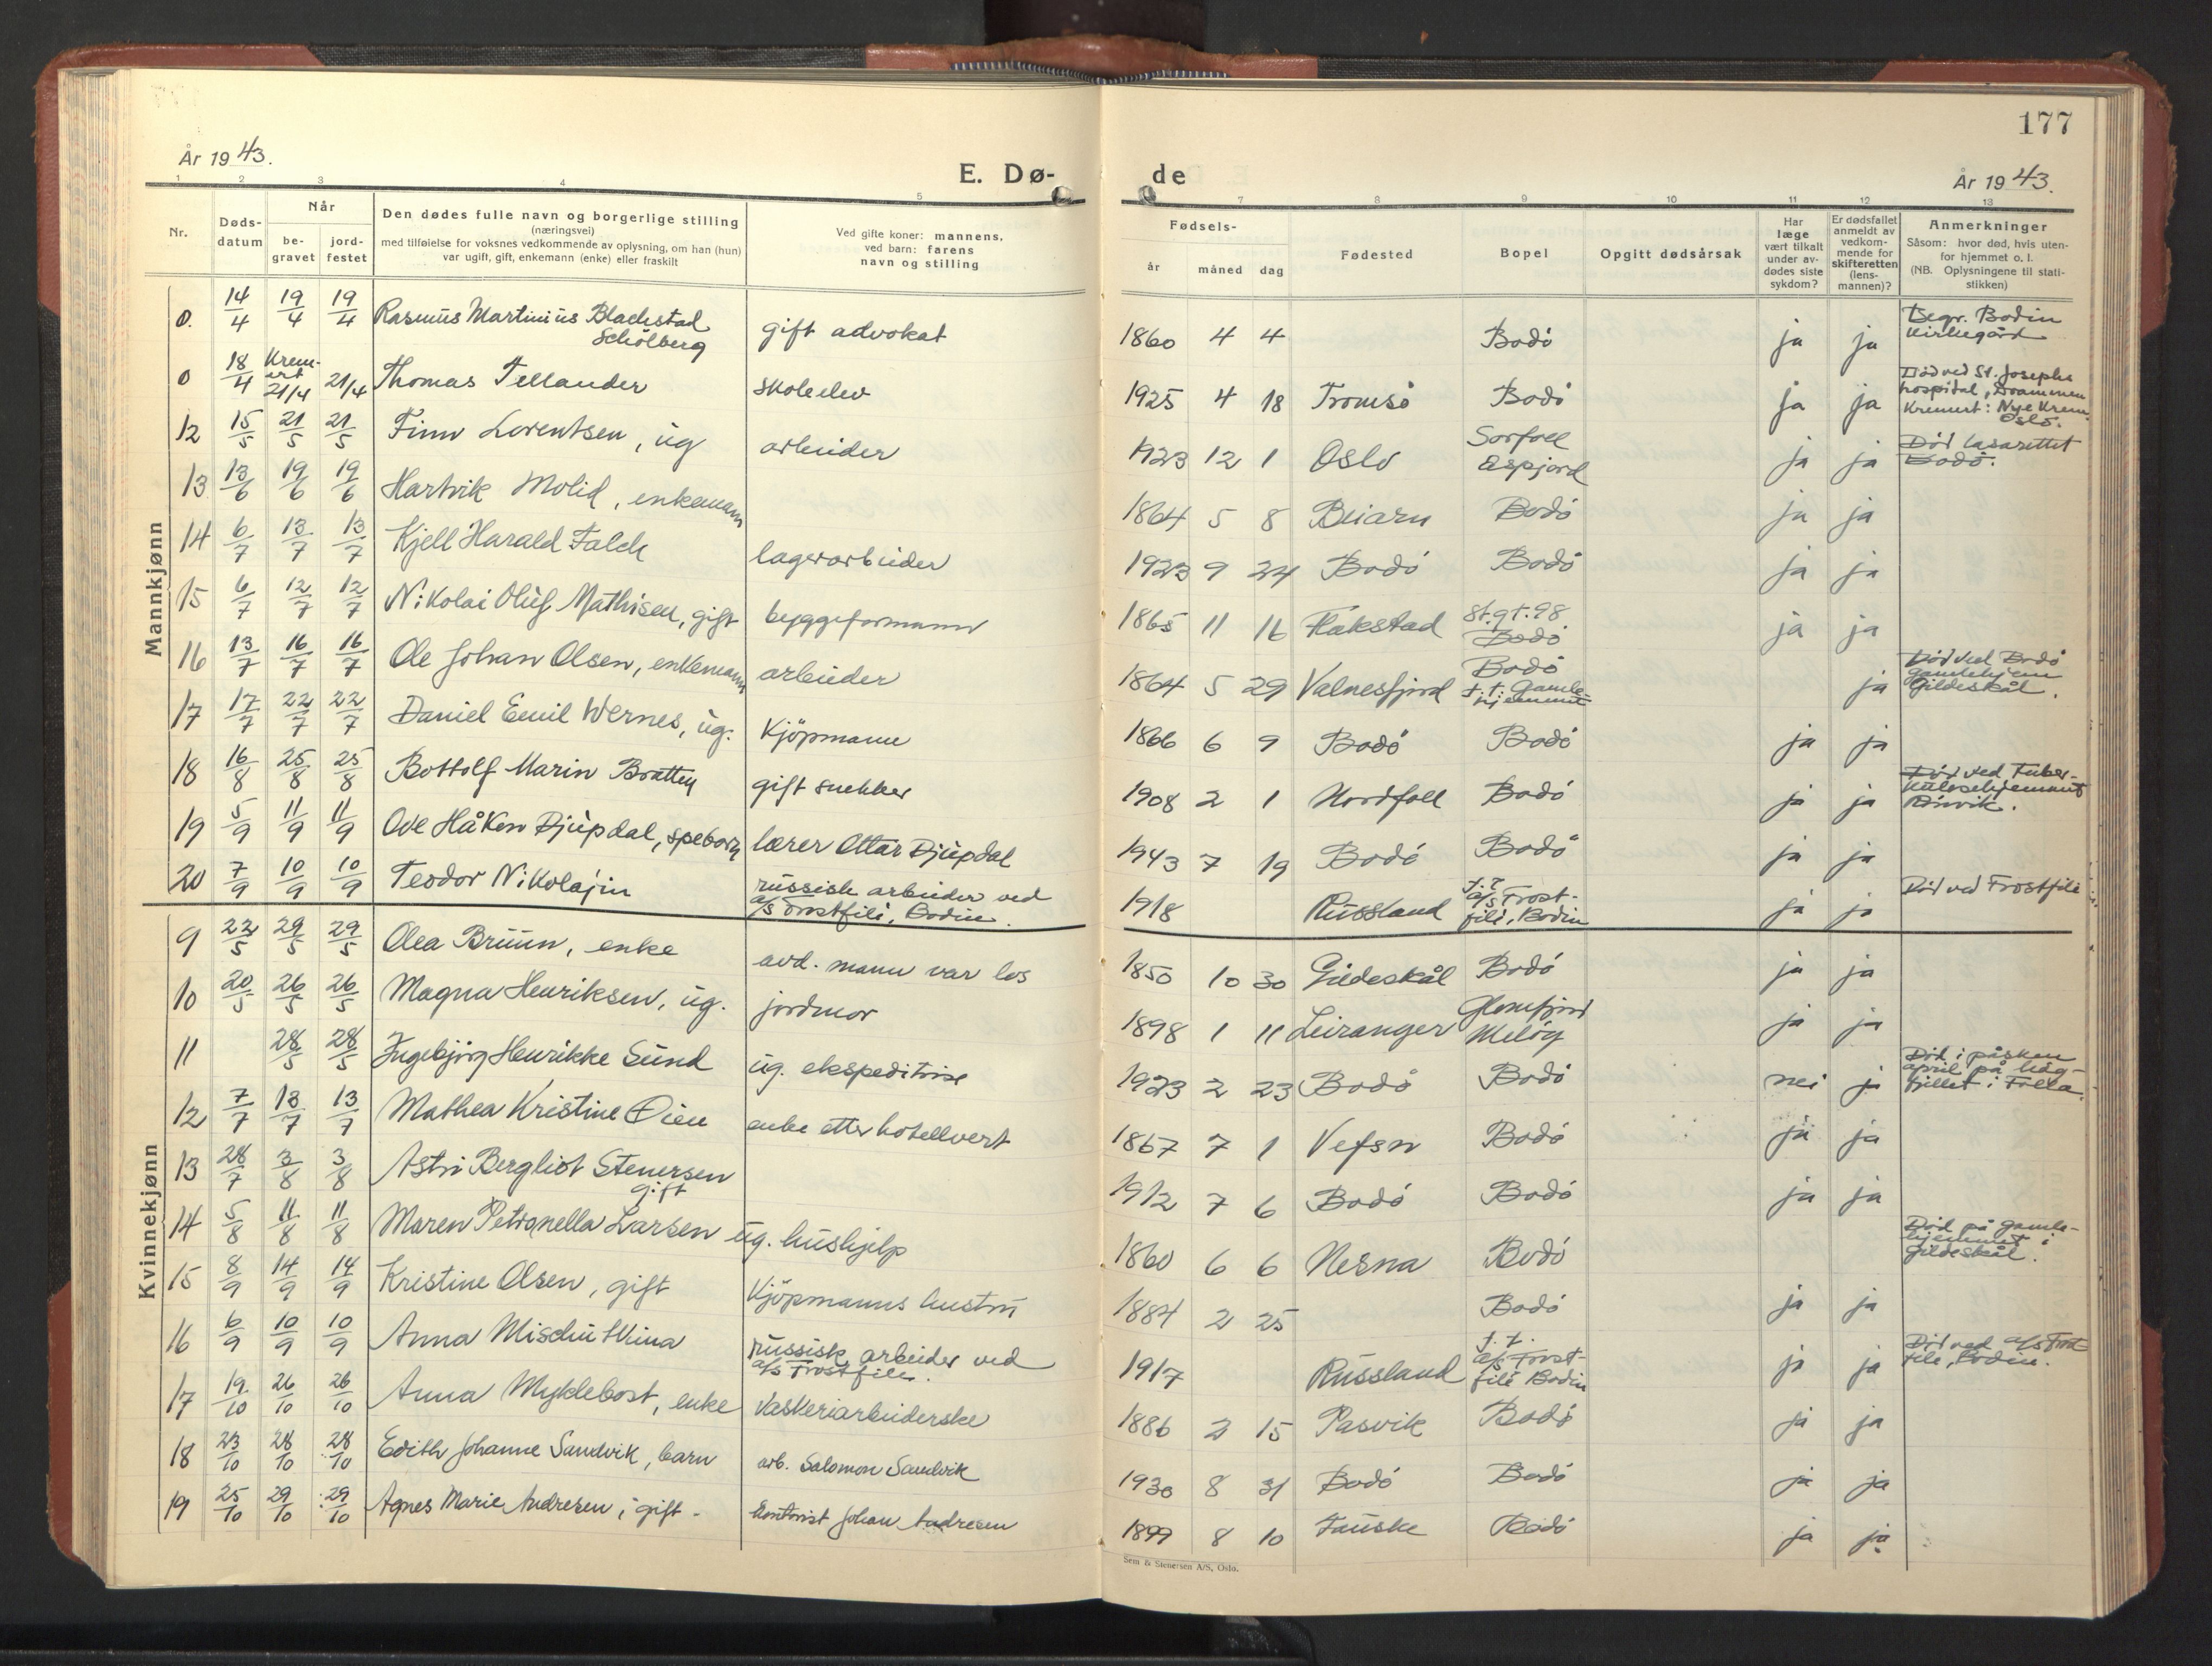 177
År 1943.
E. Dø-
de
År 1943.
1 2 3 4 5 7 8 9 10 11 12 13
Nr.
Døds-
datum
Når
be-
gravet
jord-
festet
Den dødes fulle navn og borgerlige stilling
(næringsvei)
med tilføielse for voksnes vedkommende av oplysning, om han (hun)
var ugift, gift, enkemann (enke) eller fraskilt
Ved gifte koner: mannens,
ved barn: farens
navn og stilling
Fødsels-
år måned dag
Fødested
Bopel
Opgitt dødsårsak
Har
læge
vært tilkalt
under av-
dødes siste
sykdom?
Er dødsfallet
anmeldt av
vedkom-
mende for
skifteretten
(lens-
mannen)?
Anmerkninger
Såsom: hvor død, hvis uten-
for hjemmet o. l.
(NB. Oplysningene til stati-
stikken)
Mannkjønn
0. 14/4 19/4 19/4 Rasmus Martinius Blackstad
Schölberg gift advokat 1860 4 4 Bodö ja ja Begr. Bodin
Kirkegård
0 18/4 Krem-
ert
21/4 21/4 Thomas Tellander skoleelev 1925 4 18 Tromsö Bodö ja ja Död ved St. Josephs
hospital, Drammen
Kremert: Nye Krem.
Oslo.
12 15/5 21/5 21/5 Finn Lorentsen, ug arbeider 1923 12 1 Oslo Sorfoll
Espjord ja ja Död lasarettet
Bodö.
13 13/6 19/6 19/6 Hartvik Molid, enkemann 1864 5 8 Beiarn Bodö ja ja
14 6/7 13/7 13/7 Kjell Harald Falch lagerarbeider 1923 9 24 Bodö Bodö ja ja
15 6/7 12/7 12/7 Nikolai Oluf Mathisen, gift byggeformann 1865 11 16 Flakstad St.gt.98.
Bodö ja ja
16 13/7 16/7 16/7 Ole Johan Olsen, enkemann arbeider 1864 5 29 Valnesfjord Bodö
f.t. Gamle-
hjemmet ja Död ved Bodö
gamlehjem
Gildeskål.
17 17/7 22/7 22/7 Daniel Emil Wernes, ug. Kjöpmann 1866 6 9 Bodö Bodö ja ja
18 16/8 25/8 25/8 Bottolf Marin Bratten gift snekker 1908 2 1 Nordfoll Bodö ja ja Död ved Tuber-
kulosehjemmet
19 5/9 11/9 11/9 Ove Håken Djupdal, spebarn lærer Ottar Djupdal 1943 7 19 Bodö Bodö ja ja
20 7/9 10/9 10/9 Teodor Nikolajin russisk arbeider ved
a/s Frostfili, Bodin. 1918 Russland f.t.
a/s Frost-
fili, Bodin ja ja Död ved Frostfili
Kvinnekjønn
9 22/5 29/5 29/5 Olea Bruun, enke avd. mann var los 1850 10 30 Gildeskål Bodö ja ja
10 20/5 26/5 26/5 Magna Henriksen, ug. jordmor 1898 1 11 Leiranger Glomfjord
Melöy ja ja
11 28/5 28/5 Ingebjörg Henrikke Sund ug. ekspeditrise 1923 2 23 Bodö Bodö nei ja Död i påsken
april på hög-
fjellet i Folla.
12 7/7 13/7 13/7 Mathea Kristine Öien enke etter hotellvert 1867 7 1 Vefsn Bodö ja ja
13 28/7 3/8 3/8 Astri Bergliot Stenersen
gift 1912 7 6 Bodö Bodö ja ja
14 5/8 11/8 11/8 Maren Petronella Larsen ug. hushjelp 1860 6 6 Nesna Bodö Död på gamle-
hjemmet i
Gildeskål.
15 8/9 14/9 14/9 Kristine Olsen, gift Kjöpmanns hustru 1884 2 25 Bodö ja ja
16 6/9 10/9 10/9 Anna russisk arbeider ved
a/s Frostfili. 1917 Russland f.t.
a/s Frost-
fili Bodin ja ja Död ved a/s Frost-
fili, Bodin.
17 19/10 26/10 26/10 Anna Myklebost, enke Vaskeriarbeiderske 1886 2 15 Pasvik Bodö ja ja
18 23/10 28/10 28/10 Edith Johanne Sandvik, barn arb. Salomon Sandvik 1930 8 31 Bodö Bodö ja ja
19 25/10 29/10 29/10 Agnes Marie Andresen, gift - kontorist Johan Andresen 1899 8 10 Fauske Bodö ja ja
Sem & Stenersen A/S, Oslo.